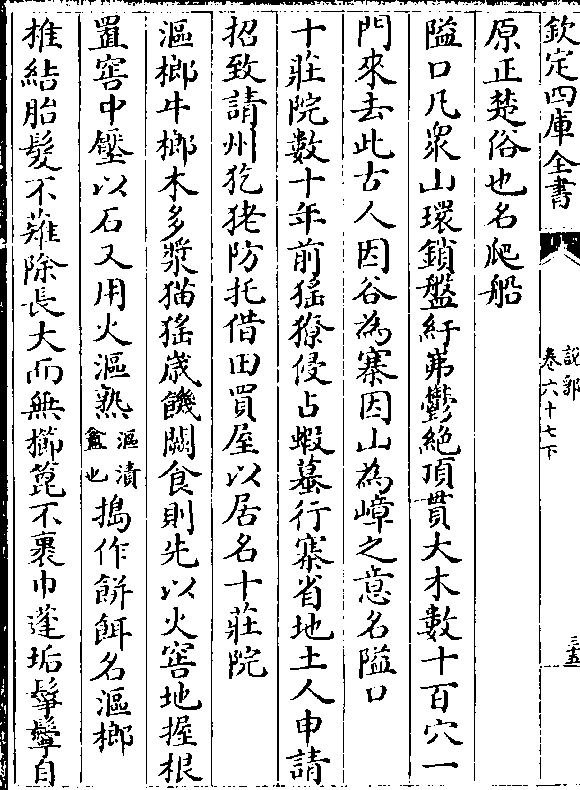 欽定四庫全書
說郛
卷六十七下
三五
原正楚俗也名爬船
隘口凡衆山環鎖盤紆岪鬱絶頂貫大木數十百穴一
門來去此古人因谷為寨因山為嶂之意名隘口
十莊院數十年前猺獠侵占蝦蟇行寨省地土人申請
招致請州犵狫防托借田買屋以居名十莊院
漚榔牛榔木多漿猫猺歳饑闕食則先以火窖地掘根
置窖中壓以石又用火漚熟漚漬
盦也搗作餅餌名漚榔
椎結胎髪不薙除長大而無櫛篦不裹巾蓬垢鬅鬙自